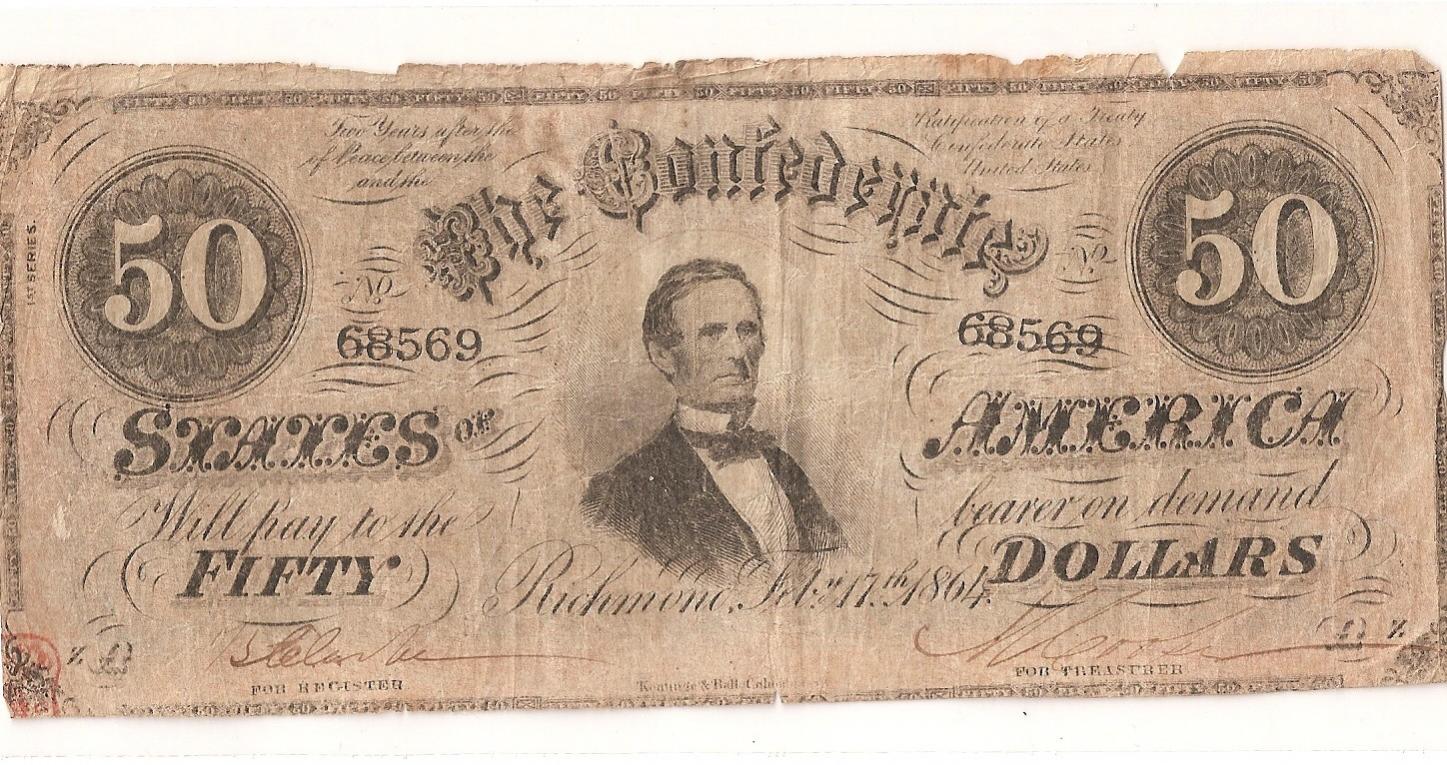 FIFTY 50 FIFTY 50 FIFTY 50 FIFTY 50 FIFTY 50 FIFTY 50 FIFTY 50 FIFTY 50
Two Years after the Ratification of a Treaty
of Peace between the Confederate States
and the United States
50 The Confederate 50
1ST SERIES.
No No
68569 68569
STATES OF AMERICA
Will pay to the bearer on demand
FIFTY DOLLARS
Richmond, Feby. 17th, 1864.
Z D D Z
FOR REGISTER FOR TREASURER
Keatinge & Ball